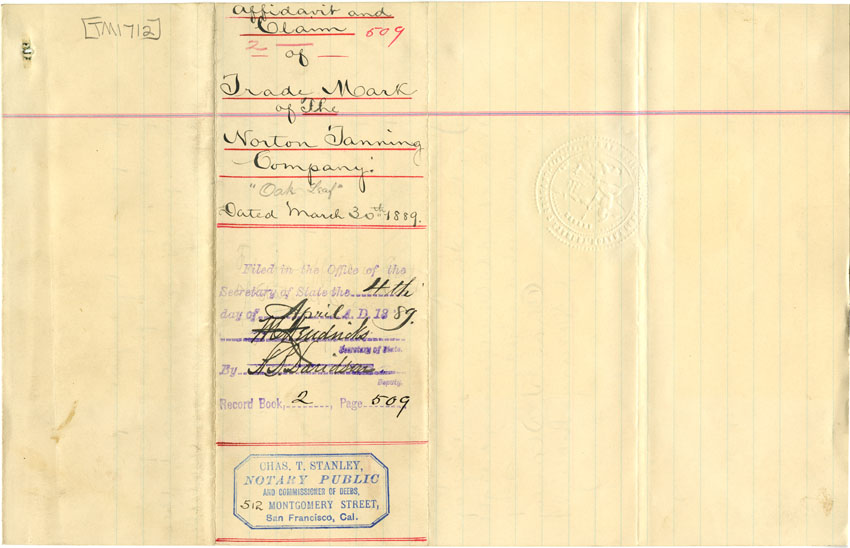 [TM1712]
Affidavit and
Claim 509
2
of
Trade Mark
of The
Norton Tanning
Company.
"Oak Leaf"
Dated March 30th 1889.
Filed in the Office of the
Secretary of State the 4th
day of April A. D. 1889.
Hendricks
Secretary of State.
By Davidson.
Deputy.
Record Book, 2, Page 509
CHAS. T. STANLEY,
NOTARY PUBLIC
AND COMMISSIONER OF DEEDS,
512 MONTGOMERY STREET,
San Francisco, Cal.